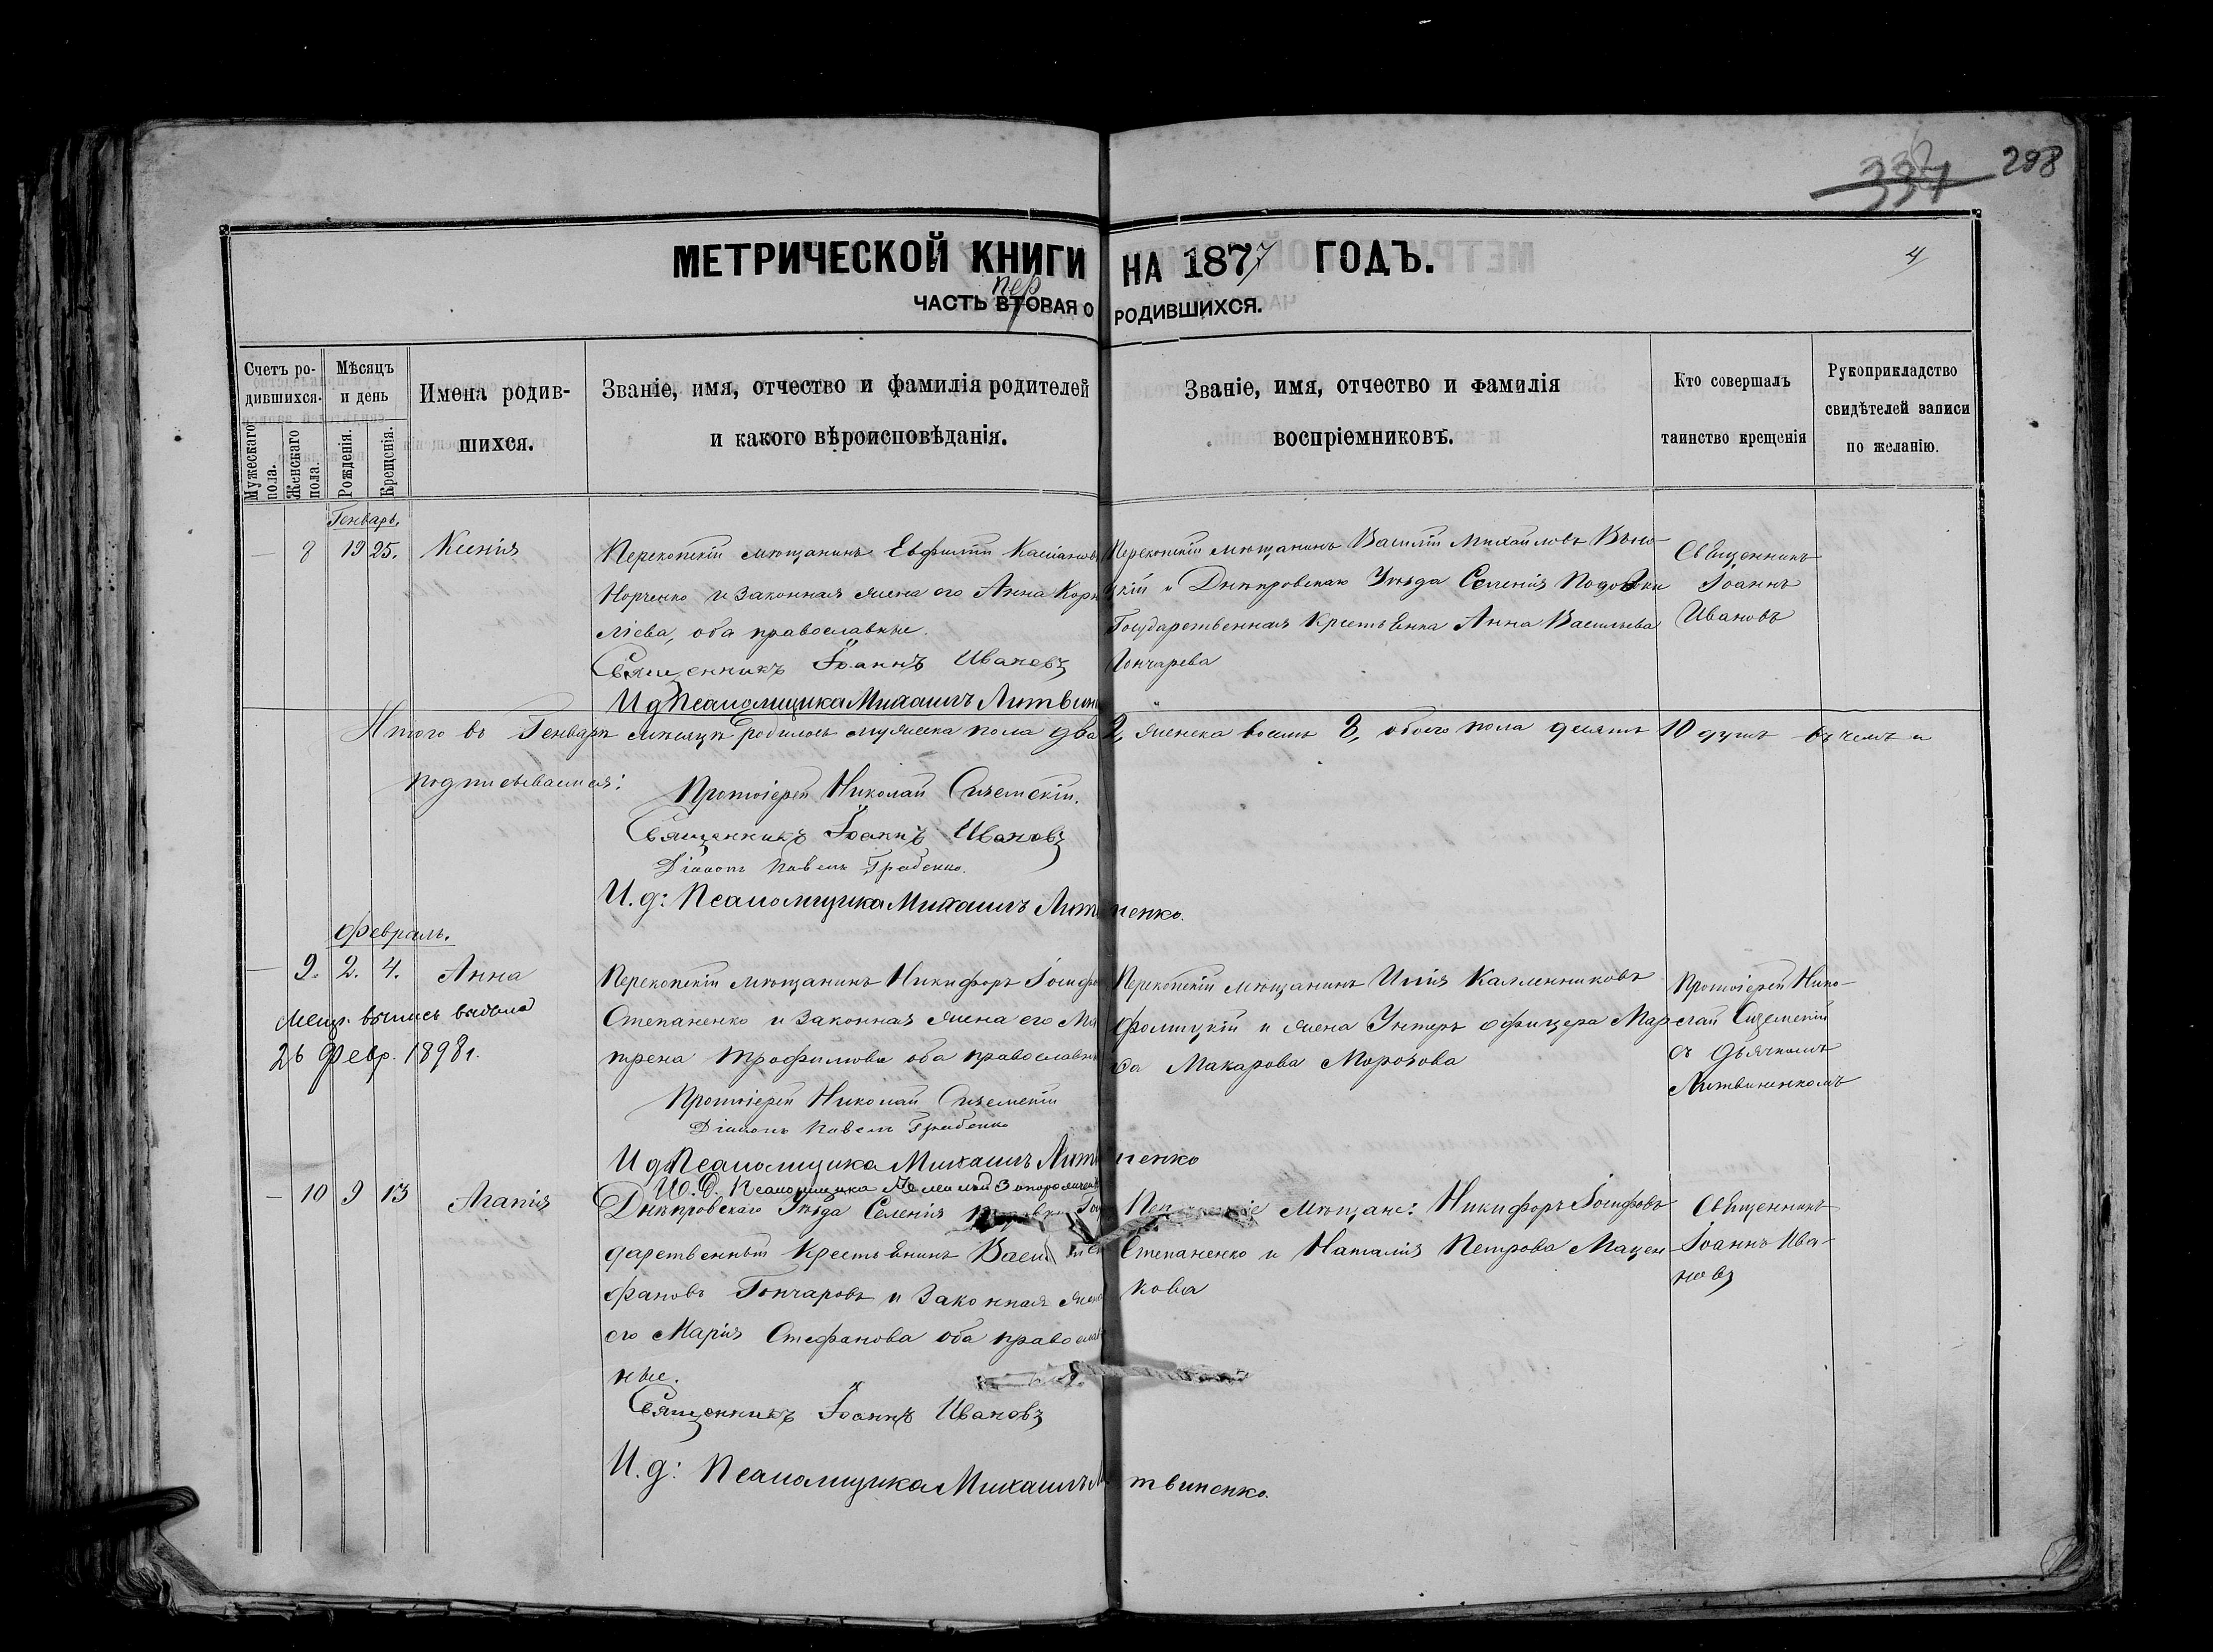 332
337
298
МЕТРИЧЕСКОЙ КНИГИ НА 1877 ГОДЪ.
4
пер
ЧАСТЬ ВТОРАЯ О РОДИВШИХСЯ.
Счетъ ро-
дившихся.
Мужескаго пола.
Женскаго пола.
Мѣсяцъ
и день
Рожденія.
Крещенія.
Имена родив-
шихся.
Званіе, имя, отчество и фамилія родителей
и какого вѣроисповѣданія.
Званіе, имя, отчество и фамилія
воспріемниковъ.
Кто совершалъ
таинство крещенія
Рукоприкладство
свидѣтелей записи
по желанію.
Генварь.
— 8 19 25. Ксенія
Перекопскій мѣщанинъ Евфимій Касіановъ
Норченко и законная жена его Анна Корн
ліева, оба православные.
Священникъ Іоаннъ Ивановъ
И д Псаломщика Михаилъ Литвин
Перекопскій мѣщанинъ Василій Михайловъ
цкій и Днѣпровскаго Уѣзда Селенія
Государственная Крестьянка Анна Васильева
Гончарева
Священникъ
Іоаннъ
Ивановъ
Итого въ Генварѣ мѣсяцѣ родилось мужеска пола два 2, женска восемь 8, обоего пола десять 10 душъ въ чемъ и
подписываемся:
Протоіерей Николай
Священникъ Іоаннъ Ивановъ
Діаконъ Павелъ Грабенко.
И. д: Псаломщика Михаилъ Литвиненко.
Февраль.
— 9. 2. 4. Анна
Метр. выпись выдана
26 Февр. 1898 г.
Перекопскій мѣщанинъ Никифоръ Іосифо
Степаненко и законная жена его Ма
трена Трофимова оба православн
Протоіерей Николай
Діаконъ Павелъ Грабенко
И д Псаломщика Михаилъ Литвиненко
И. Д. Псаломщика
Перекопскій мѣщанинъ Илія Каллениковъ
и жена Унтеръ офицера Мар
ѳа Макарова Морозова
Протоіерей Нико-
лай
съ Дьячкомъ
Литвиненкомъ
— 10 9 13 Агапія
Днѣпровскаго Уѣзда Селенія Госу
дарственный Крестьянинъ Васил
фановъ Гончаровъ и законная жена
его Марія Стефанова оба православ
ные.
Священникъ Іоаннъ Ивановъ
И. д: Псаломщика Михаилъ Литвиненко.
Мѣщане: Никифоръ Іосифовъ
Степаненко и Наталія Петрова Мацен
кова
Священникъ
Іоаннъ Ива-
новъ